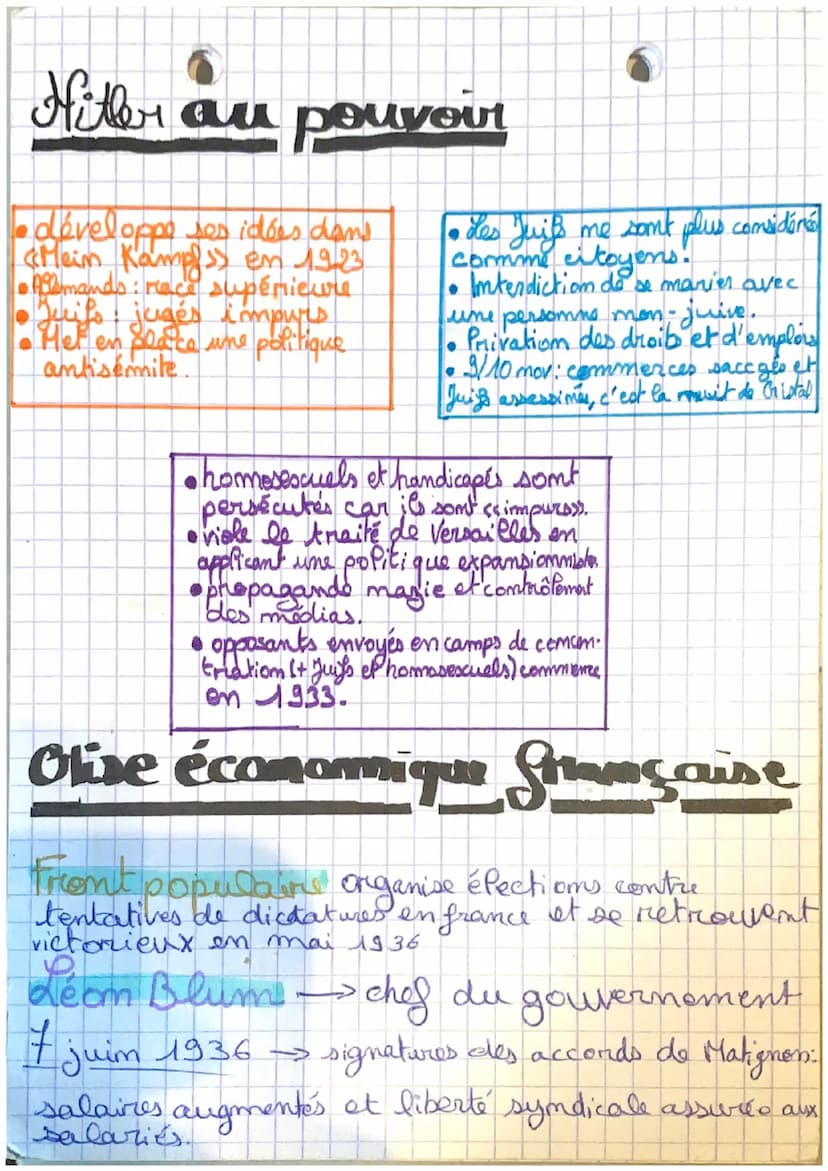 Hitler au pouvoir
• développe ses idées dans
«Mein Kampf» en 1923
• Allemands : race supérieure
• Juifs : jugés impurs
• Met en place une politique
antisémite.
• Les Juifs ne sont plus considéré
comme citoyens.
• Interdiction de se marier avec
une personne non-juive.
• Privation des droits et d'emplois
• 9/10 nov : commerces saccgés et
Juifs assessinés, c'est la nuit de Cristal
• homosexuels et handicapés sont
persécutés car ils sont «impurs».
• viole le traité de Versailles en
applicant une politique expansionniste
• propagande nazie et contrôlement
des médias.
• opposants envoyés en camps de concen-
triation (+ Juifs et homosexuels) commence
en 1933.
Crise économique française
Front populaire organise élections contre
tentatives de dictatures en france et se retrouvent
victorieux en mai 1936
Léon Blum → chef du gouvernement
7 juin 1936 → signatures des accords de Matignon:
salaires augmentés et liberté syndicale assurée aux
salariés.